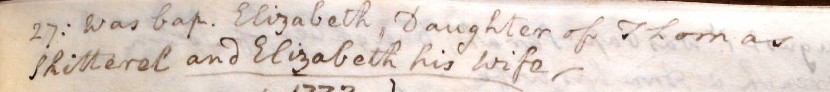 27: Was bap. Elizabeth, Daughter of Thomas
Skitterel and Elizabeth his Wife